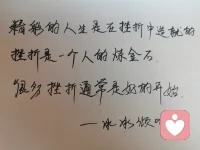 精彩的人生是在挫折中造就的
挫折是一个人的炼金石
很多挫折通常是好的开始
——冰冰